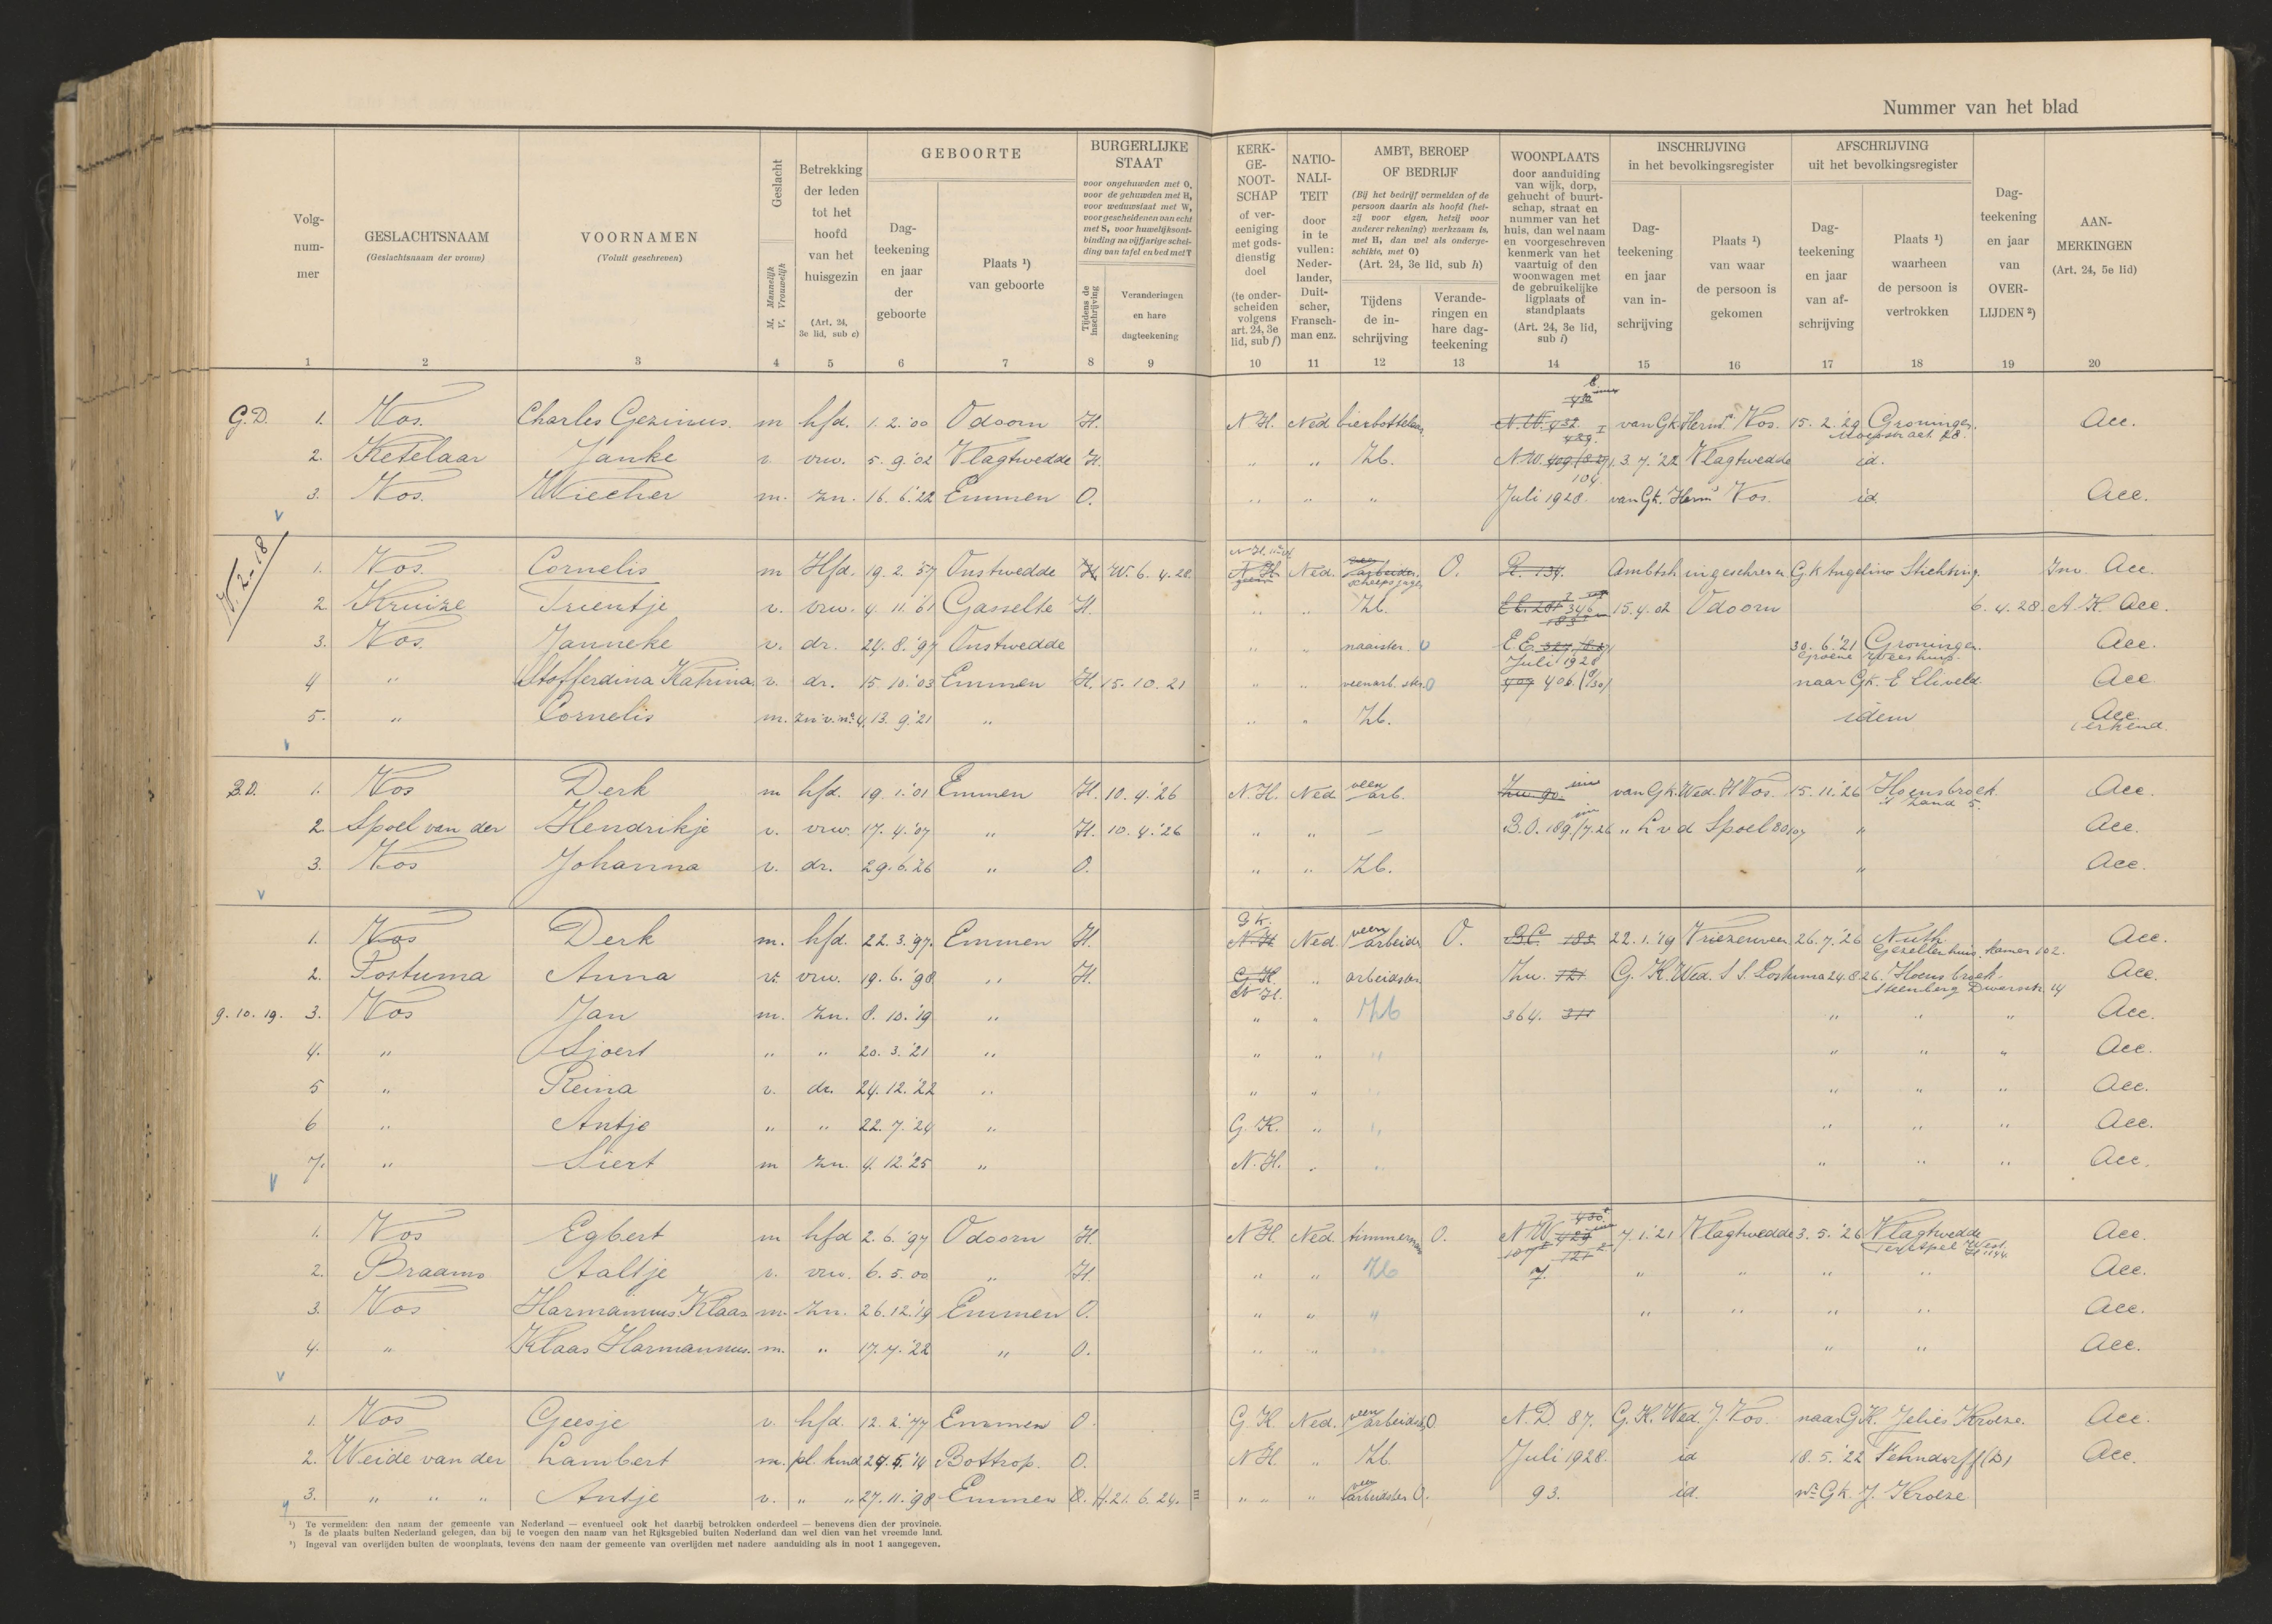 Nummer van het blad
Volg-
num-
mer
GESLACHTSNAAM
(Geslachtsnaam der vrouw)
VOORNAMEN
(Voluit geschreven)
Geslacht
M. Mannelijk
V. Vrouwelijk
Betrekking
der leden
tot het
hoofd
van het
huisgezin
(Art. 24,
3e lid, sub c)
GEBOORTE
Dag-
teekening
en jaar
der
geboorte
Plaats ¹)
van geboorte
BURGERLIJKE
STAAT
voor ongehuwden met O,
voor de gehuwden met H,
voor weduwstaat met W,
voor gescheidenen van echt
met S, voor huwelijksont-
binding na vijfjarige schei-
ding van tafel en bed met T
Tijdens de
inschrijving
Veranderingen
en hare
dagteekening
KERK-
GE-
NOOT-
SCHAP
of ver-
eeniging
met gods-
dienstig
doel
(te onder-
scheiden
volgens
art. 24, 3e
lid, sub f)
NATIO-
NALI-
TEIT
door
in te
vullen:
Neder-
lander,
Duit-
scher,
Fransch-
man enz.
AMBT, BEROEP
OF BEDRIJF
(Bij het bedrijf vermelden of de
persoon daarin als hoofd (het-
zij voor eigen, hetzij voor
anderer rekening) werkzaam is,
met H, dan wel als onderge-
schikte, met O)
(Art. 24, 3e lid, sub h)
Tijdens
de in-
schrijving
Verande-
ringen en
hare dag-
teekening
WOONPLAATS
door aanduiding
van wijk, dorp,
gehucht of buurt-
schap, straat en
nummer van het
huis, dan wel naam
en voorgeschreven
kenmerk van het
vaartuig of den
woonwagen met
de gebruikelijke
ligplaats of
standplaats
(Art. 24, 3e lid,
sub i)
INSCHRIJVING
in het bevolkingsregister
Dag-
teekening
en jaar
van in-
schrijving
Plaats ¹)
van waar
de persoon is
gekomen
AFSCHRIJVING
uit het bevolkingsregister
Dag-
teekening
en jaar
van af-
schrijving
Plaats ¹)
waarheen
de persoon is
vertrokken
Dag-
teekening
en jaar
van
OVER-
LIJDEN ²)
AAN-
MERKINGEN
(Art. 24, 5e lid)
1 2 3 4 5 6 7 8 9 10 11 12 13 14 15 16 17 18 19 20
G.D. 1. Vos. Charles Gezinus. m hfd. 1.2.'00 Odoorn H. N H. Ned bierbottelaar N.W. 432 429. van Gk Herms Vos. 15.2.'29 Groningen. Acc.
2. Ketelaar Janke v vrw. 5.9.'02 Vlagtwedde H. " " Zb. N.W. 409 13.7.'22 Vlagtwedde id.
104.
3. Vos. Wiecher m. zn. 16.6.'22 Emmen O. " " " Juli 1928 van Gk. Herms Vos. id. Acc.
1. Vos. Cornelis m Hfd. 19.2.57 Onstwedde H W. 6.4.28. N H Ned. arbeider O. 134. Ambtsh ingeschreven G.k Angelino Stichting. Inv. Acc.
geen scheepsjager
2 Kruize Trientje v. vrw. 4.11.'61 Gasselte H. " " Zb. 346 15.4.02 Odoorn 6.4.28. A.K. Acc.
3. Vos. Janneke v. dr. 24.8.'97 Onstwedde " " naaister. O EE. 30.6.'21 Groningen. Acc.
Juli 1928 Groene Weeshuis.
4 " Stofferdina Katrina v. dr. 15.10.'03 Emmen H. 15.10.21 " " veenarb. ster O 409 406 naar Gk. E Eliveld Acc
5. " Cornelis m. zn v. no 4. 13.9.'21 " " " Zb. idem Acc
erkend.
B.D. 1. Vos Derk m hfd. 19.1.'01 Emmen H. 10.4.'26 N.H. Ned veen arb. Zw. 90. van Gk Wed. H Vos. 15.11.'26 Hoensbroek Acc.
't Zand 5.
2. Spoel van der Hendrikje v. vrw. 17.4.'07 " H. 10.4.'26 " " — B.O. 189 /7.26 " L v d Spoel " Acc.
3. Vos Johanna v. dr. 29.6.'26 " O. " " Zb. " Acc.
1. Vos Derk m. hfd. 22.3.'97. Emmen H. G K. N H Ned veen arbeider O. 183. 22.1.'19 Vriezenveen 26.7.'26 Nuth Acc.
Gezellenhuis. kamer 102.
2. Postuma Anna v. vrw. 19.6.'98 " H. G.H. " arbeidster Zw. 121 G.K. Wed. S S. Postuma 24.8.26. Hoensbroek Acc.
N H. Steenberg Dwarsstr 14
9.10.19. 3. Vos Jan m. zn. 8.10.'19 " " " Zb 364. 311 " " " Acc.
4. " Sjoert " " 20.3.'21 " " " " " " " Acc.
5 " Reina v. dr. 24.12.'22 " " " " " " Acc.
6 " Antje " " 22.7.'24 " G.K. " " " " " Acc.
7. " Siert m zn. 4.12.'25 " N.H. " " " " " Acc.
1. Vos Egbert m hfd 2.6.'97 Odoorn H. N H. Ned. timmerman O. N W 429 7.1.'21 Vlagtwedde 3.5.'26 Vlagtwedde Acc.
2. Braams Aaltje v. vrw. 6.5.00 " H. " " Zb 7. " " " " Acc.
3. Vos Harmannus Klaas m. zn. 26.12.'19 Emmen O. " " " " " " " Acc.
4. " Klaas Harmannus. m. " 17.7.'22 " O. " " " " " Acc.
1. Vos Geesje v. hfd. 12.2.'77 Emmen O. G.K Ned. veen arbeidster O N.D. 87. G.K. Wed. J. Vos. naar G K. Jelies Kroeze. Acc.
2. Weide van der Lambert m. pl. kind 27.5.'14 Bottrop. O. N H. " Zb. Juli 1928. id 18.5.'22 Fehndorf (D) Acc.
3. " " " Antje v. " " 27.11.'98 Emmen O. H. 21.6.24. " " " veen arbeidster O. 93. id. nr Gk. J. Kroeze
¹) Te vermelden: den naam der gemeente van Nederland — eventueel ook het daarbij betrokken onderdeel — benevens dien der provincie.
Is de plaats buiten Nederland gelegen, dan bij te voegen den naam van het Rijksgebied buiten Nederland dan wel dien van het vreemde land.
²) Ingeval van overlijden buiten de woonplaats, tevens den naam der gemeente van overlijden met nadere aanduiding als in noot 1 aangegeven.